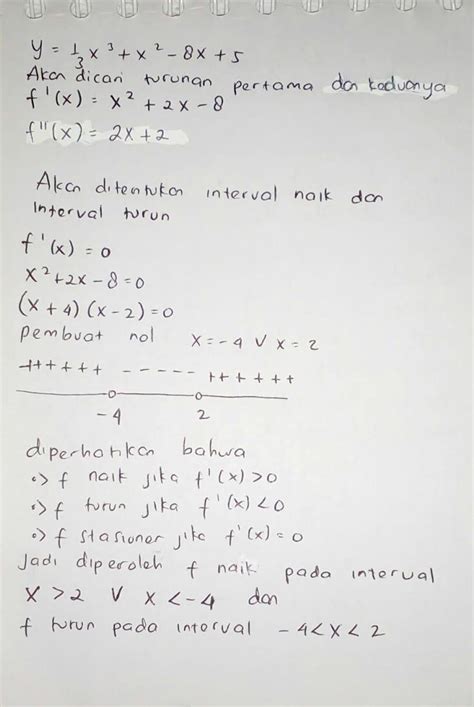 y = 1/3 x³ + x² - 8x + 5
Akan dicari turunan pertama dan keduanya
f'(x) = x² + 2x - 8
f''(x) = 2x + 2
Akan ditentukan interval naik dan
interval turun
f'(x) = 0
x² + 2x - 8 = 0
(x + 4) (x - 2) = 0
pembuat nol x = -4 V x = 2
++++++ ----- ++++++
-4 2
diperhatikan bahwa
•> f naik jika f'(x) > 0
•> f turun jika f'(x) < 0
•> f stasioner jika f'(x) = 0
Jadi diperoleh f naik pada interval
x > 2 V x < -4 dan
f turun pada interval -4 < x < 2